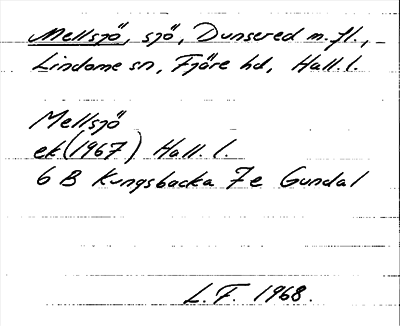 Mellsjö, sjö, Dunsered m.fl.,
Lindome sn, Fjäre hd, Hall. l.
Mellsjö
ek (1967) Hall. l.
6 B Kungsbacka 7e Gundal
L.F. 1968.